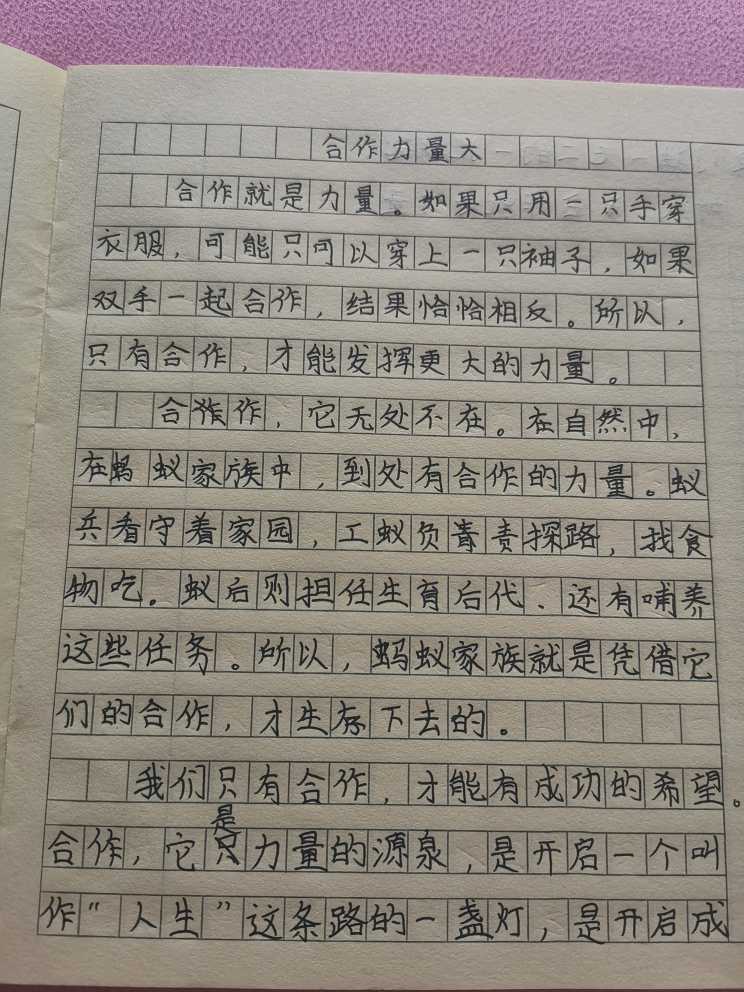 合作力量大
合作就是力量。如果只用一只手穿
衣服，可能只可以穿上一只袖子，如果
双手一起合作，结果恰恰相反。所以，
只有合作，才能发挥更大的力量。
合作，它无处不在。在自然中，
在蚂蚁家族中，到处有合作的力量。蚁
兵看守着家园，工蚁负责探路，找食
物吃。蚁后则担任生育后代、还有哺养
这些任务。所以，蚂蚁家族就是凭借它
们的合作，才生存下去的。
我们只有合作，才能有成功的希望。
合作，它是力量的源泉，是开启一个叫
作“人生”这条路的一盏灯，是开启成